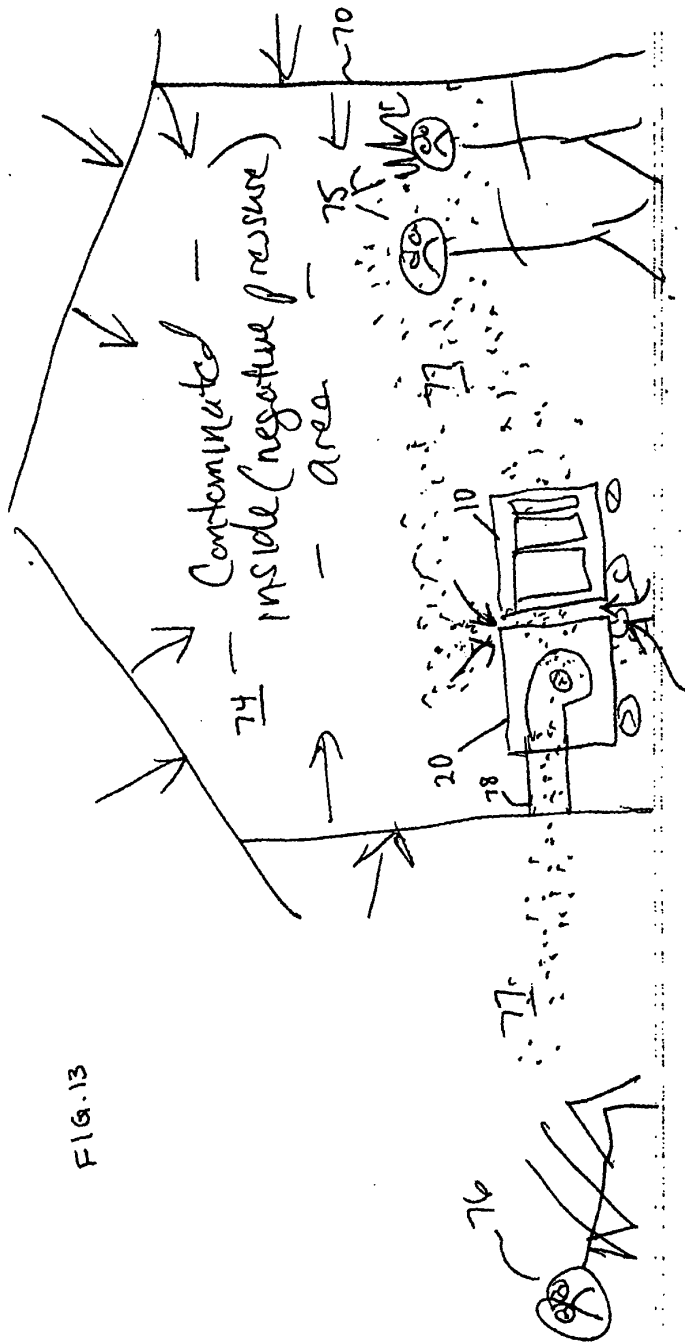 FIG.13
74
Contaminated
inside (negative pressure
area
)
70
75
77
10
20
78
77
76